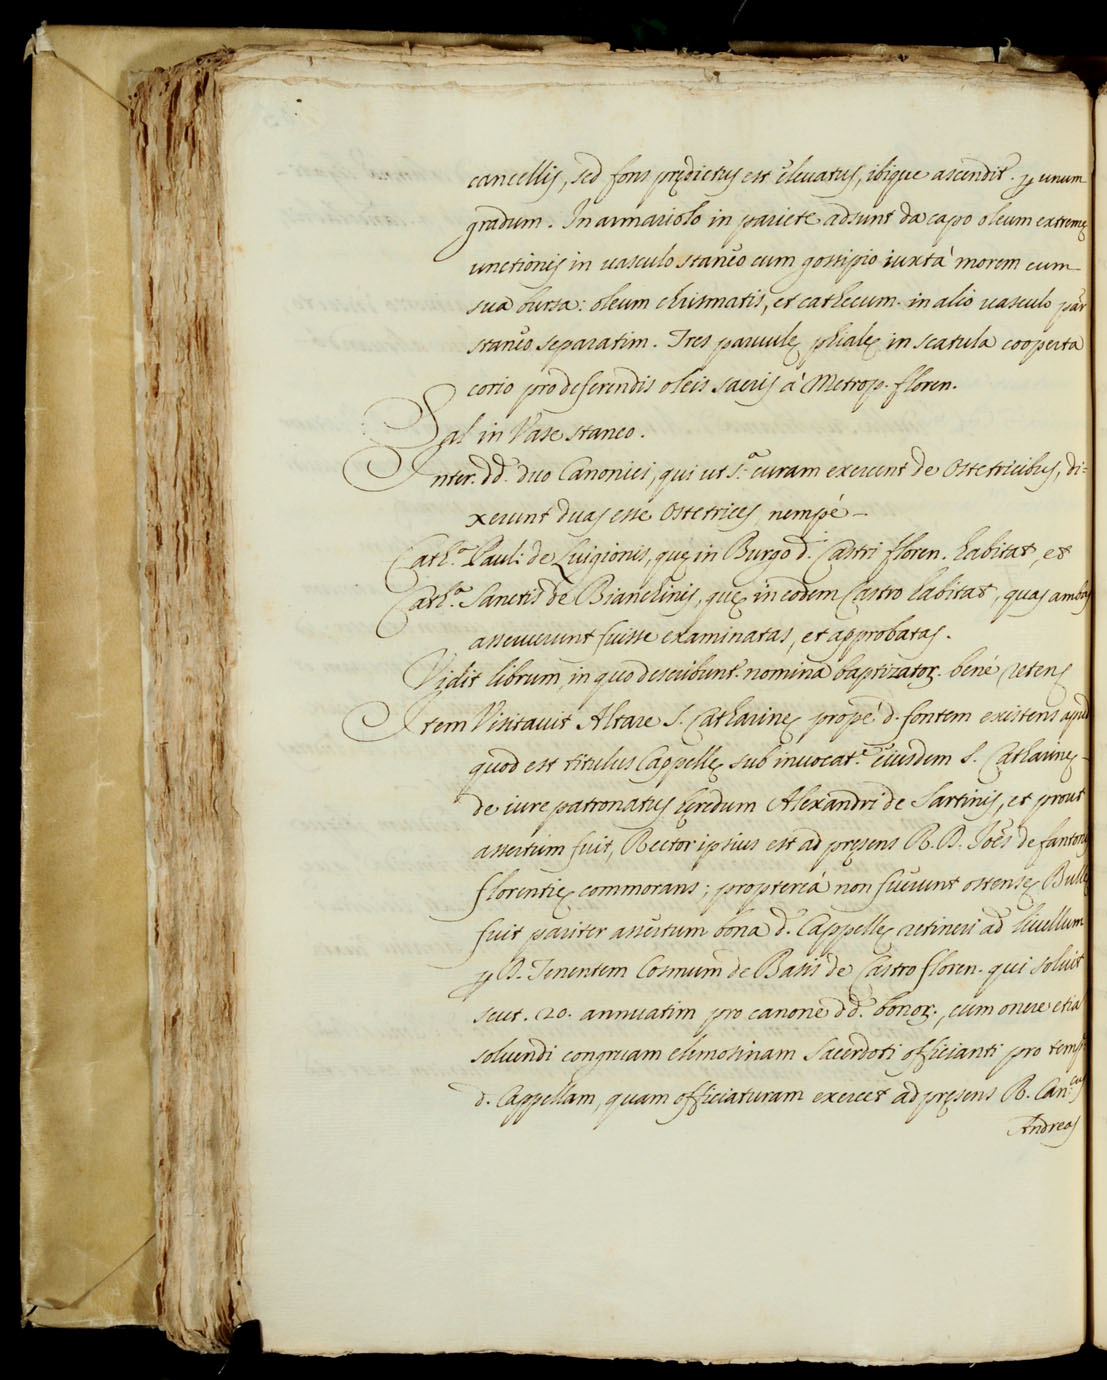 cancellis, sed fons prędictus est eleuatus, ibique ascendit. p unum
gradum. In armariolo in pariete adsunt da capo oleum extremę
unctionis in uasculo staneo cum gossipio iuxtà morem cum
sua bursa: oleum chrismatis, et cathecum. in alio uasculo par
staneo separatim. Tres paruulę phialę in scatula cooperta
corio pro deferendis oleis sacris à Metrop. floren.
Sal in Vase staneo.
Inter. dd. duo Canonici, qui ut s.ª curam exercent de Ostetricibus, di=
xerunt duas esse Ostetrices, nempè
Cath.ª Pauli de Luigionis, quę in Burgo d. Castri floren. habitat, et
Cath.ª Sanctis de Bianchinis, quę in eodem Castro habitat, quas ambas
asseruerunt fuisse examinatas, et approbatas.
Vidit librum, in quo describunt. nomina baptizatoꝝ. benè retens
Item Visitauit Altare S. Catharinę propè d. fontem existens apud
quod est titulus Cappellę sub inuocat.e eiusdem S. Catharinę
de iure patronatus hęredum Alexandri de Sartinis, et prout
assertum fuit, Rector ipsius est ad pręsens R. D. Joẽs de fantonis
florentię commorans; proptereà non fuerunt ostensę Bullę
fuit pariter assertum bona d. Cappellę retineri ad liuellum
p D. Tenentem Cosmum de Basis de Castro floren. qui soluit
scut. 20. annuatim pro canone dd. bonoꝝ., cum onere etiã
soluendi congruam elemosinam Sacerdoti officianti pro temp.
d. Cappellam, quam officiaturam exercet ad pręsens R. Can.cus
Andreas